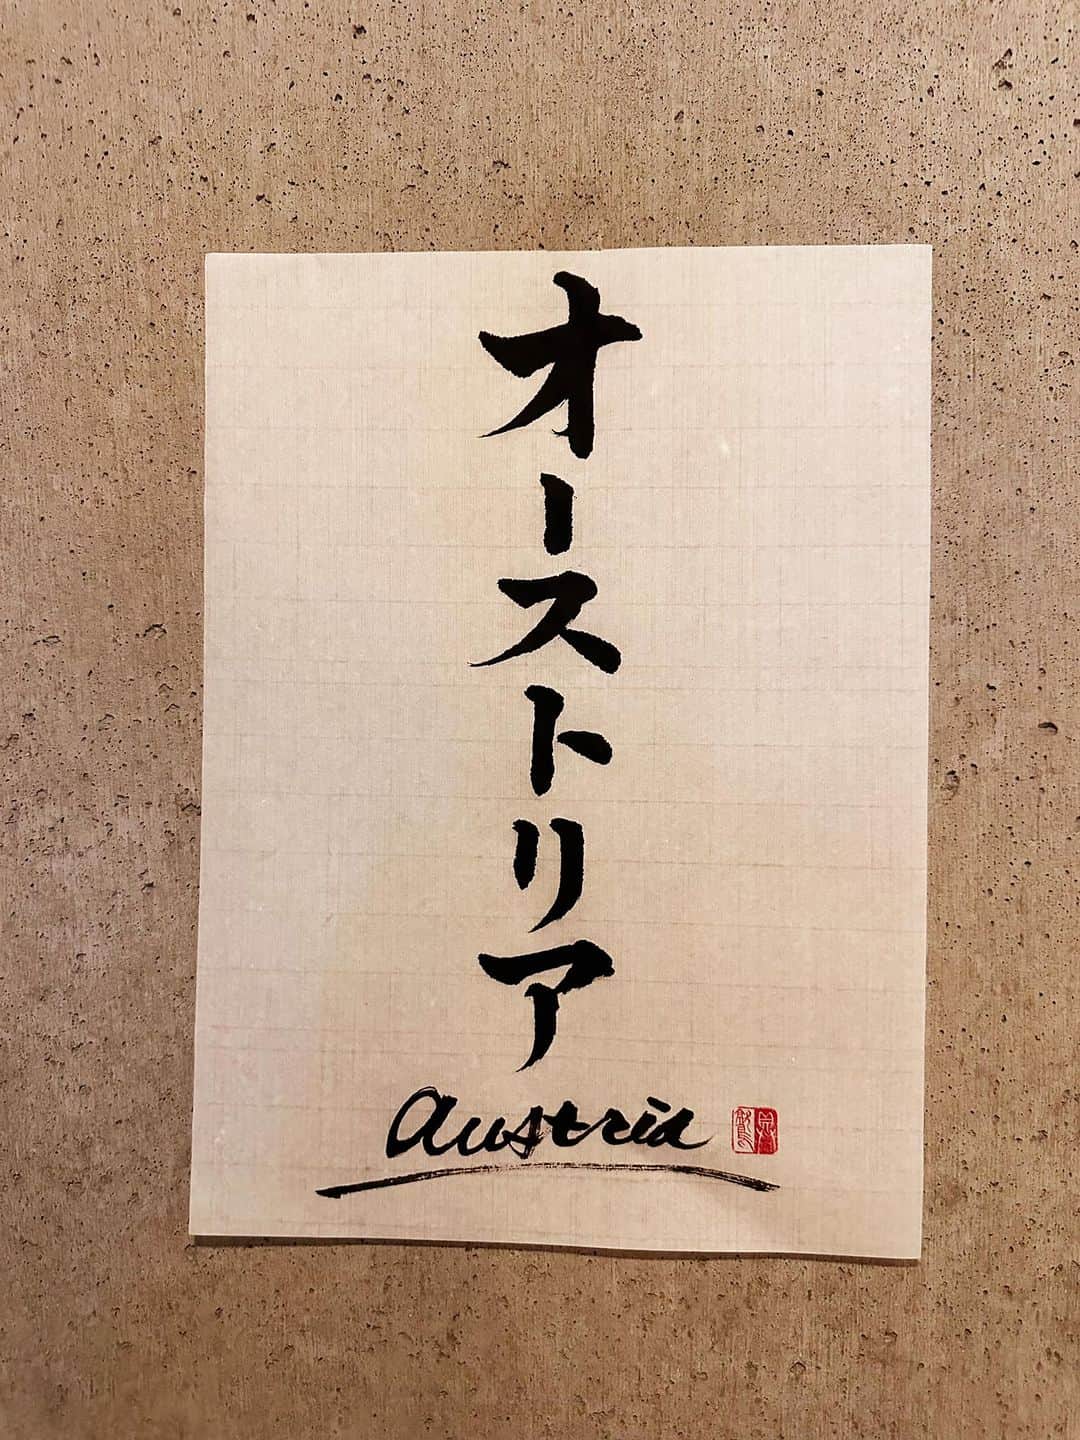 オーストリア
austria